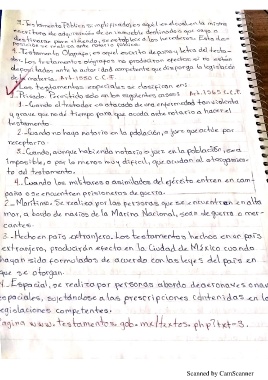 3. Testamento Público simplificado: es aquel en el cual en la misma
escritura de adquisición de un inmueble destinado a que vaya a
destinarse para vivienda, se establece a los herederos. Este tes-
tamento se realiza ante notario público.
4. Testamento Ológrafo, es aquel escrito de puño y letra del testa-
dor. Los testamentos ológrafos no producirán efectos si no están
depositados ante la autoridad competente que disponga la legislación
de la materia. Art. 1550 C.C.F.
Los testamentos especiales se clasifican en:
Privado. Permitido solo en los siguientes casos Art. 1565 C.C.F.
1- Cuando el testador es atacado de una enfermedad tan violenta
y grave que no dé tiempo para que acuda ante notario a hacer el
testamento.
2- Cuando no haya notario en la población, o juez que actúe por
receptoría.
3- Cuando, aunque habiendo notario o juez en la población, sea
imposible, o por lo menos muy difícil, que acudan al otorgamien-
to del testamento.
4- Cuando los militares o asimilados del ejército entren en cam-
paña o se encuentren prisioneros de guerra.
2- Marítimo. Se realiza por las personas que se encuentran en alta
mar, a bordo de navíos de la Marina Nacional, sean de guerra o mer-
cantes.
3- Hecho en país extranjero. Los testamentos hechos en un país
extranjero, producirán efecto en la Ciudad de México cuando
hayan sido formulados de acuerdo con las leyes del país en
que se otorgan.
4. Espacial, se realiza por personas abordo de aeronaves o naves
espaciales, sujetándose a las prescripciones contenidas en la
legislaciones competentes.
Página www.testamentos.gob.mx/textos.php?txt=3.
Scanned by CamScanner